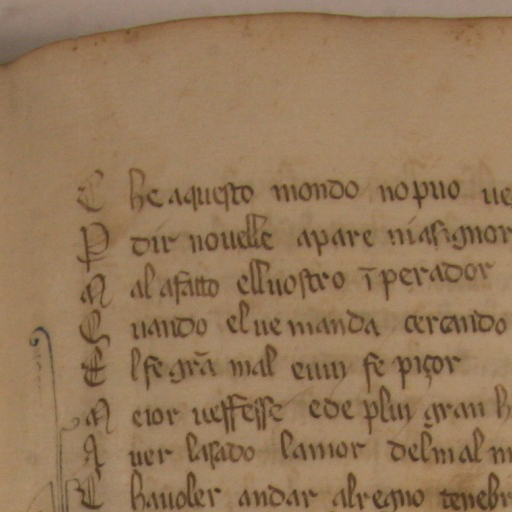 C he aquesto mondo no puo ue
P dir nouelle apare mia signor
M al a fatto el uostro ī perador
Q uando el ue manda cercando
E l fe grā mal e uui fe piçor
M eior ue fesse e de plui gran h
A uer lasado lamor del mal m
C ha uoler andar al regno tenebr